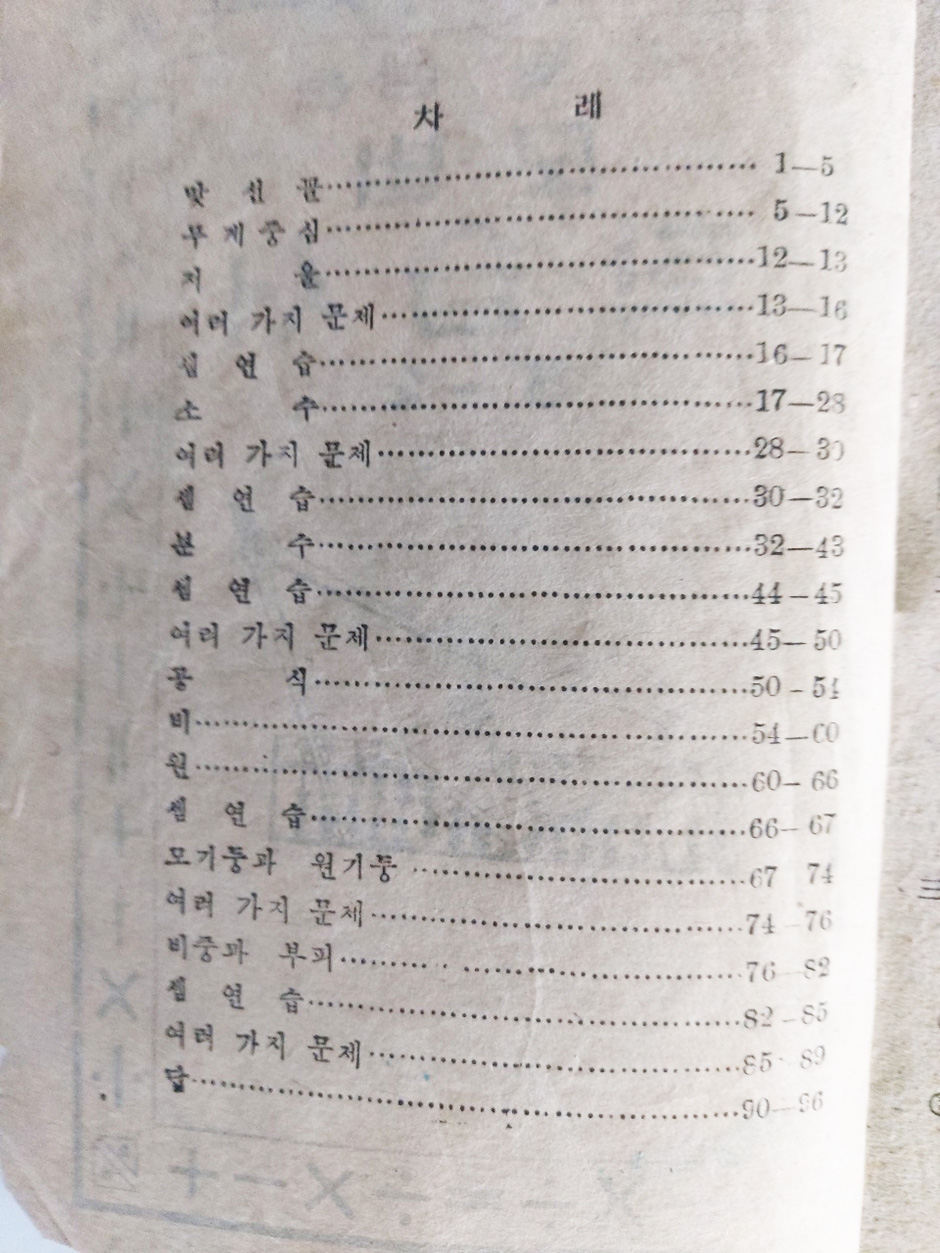 차 례
맞 선 꼴 1—5
무게중심 5—12
지 웅 12—13
여러 가지 문제 13—16
셈 연 습 16—17
소 수 17—28
여러 가지 문제 28—30
셈 연 습 30—32
분 수 32—43
셈 연 습 44—45
여러 가지 문제 45—50
공 식 50—54
비 54—60
원 60—66
셈 연 습 66—67
모기둥과 원기둥 67 74
여러 가지 문제 74—76
비중과 부피 76 82
셈 연 습 82—85
여러 가지 문제 85 89
답 90—96